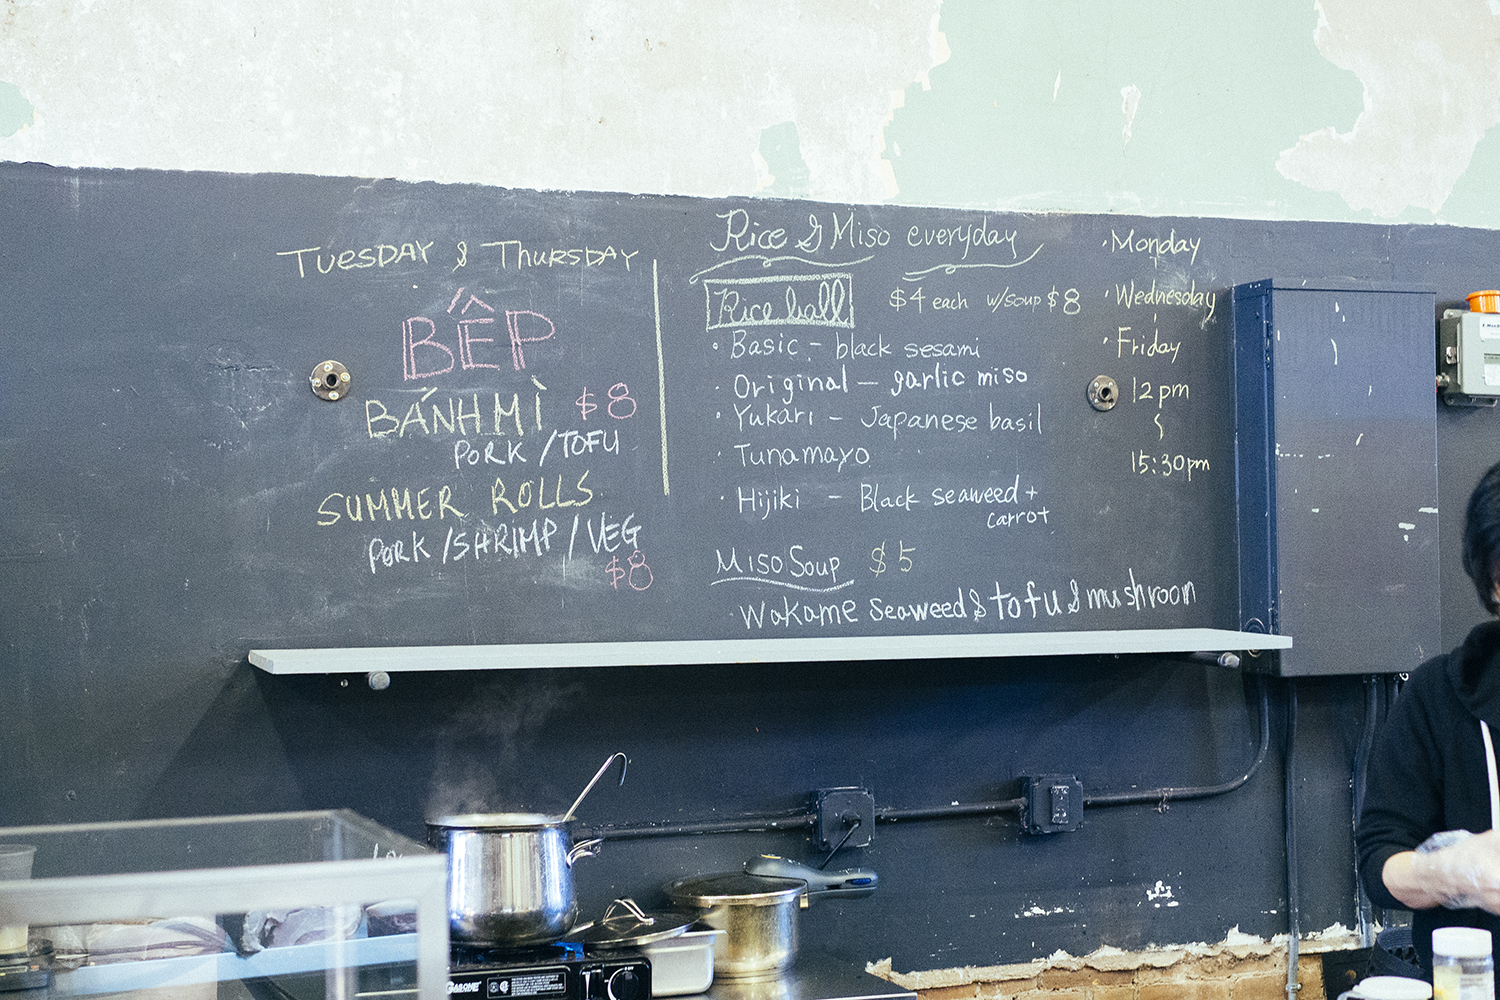 TUESDAY & THURSDAY
BẾP
BÁNH MÌ $8
PORK / TOFU
SUMMER ROLLS
PORK / SHRIMP / VEG
$8
Rice & Miso everyday
Rice ball $4 each w/soup $8
· Basic - black sesami
· Original — garlic miso
· Yukari - Japanese basil
· Tunamayo
· Hijiki - Black seaweed +
carrot
Miso Soup $5
· Wakame seaweed & tofu & mushroom
· Monday
· Wednesday
· Friday
12 pm
~
15:30pm
GASONE